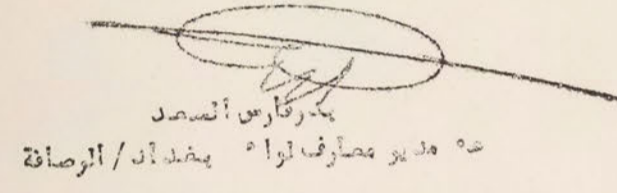 بدر فارس السعد
ع° مدير معارف لواء بغداد / الرصافة